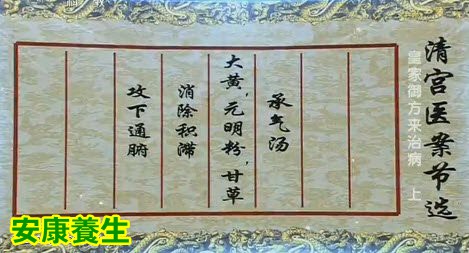 清宫医案节选
皇家御方来治病 上
承气汤
大黄,元明粉,甘草
消除积滞
攻下通腑
安康養生